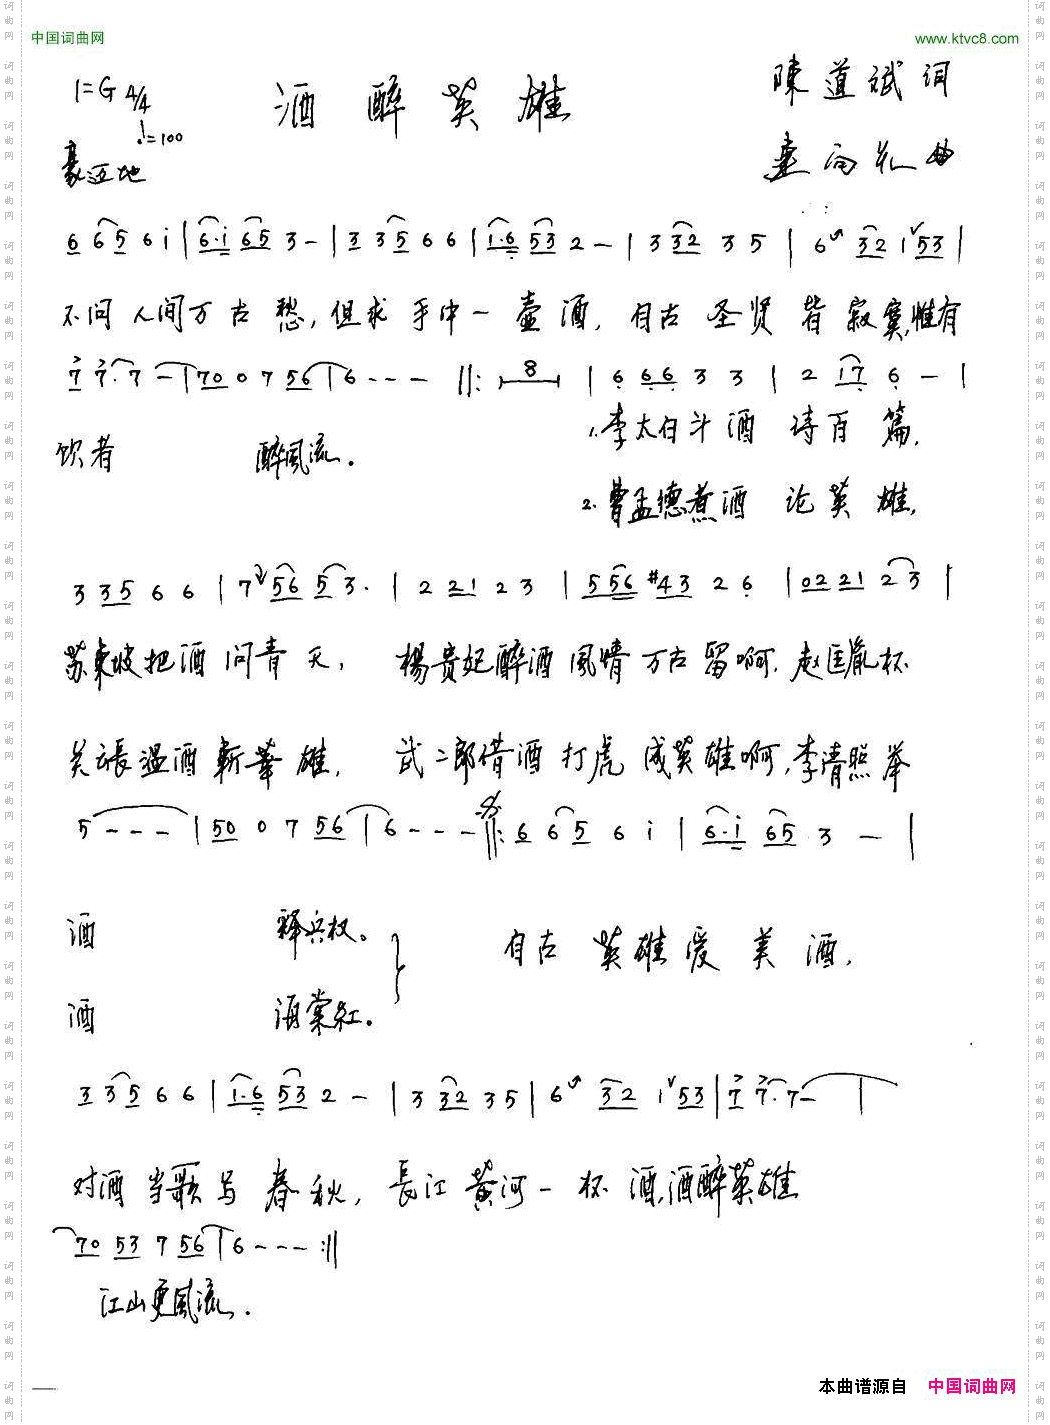 中国词曲网 www.ktvc8.com
1=G 4/4 酒醉英雄 陳道斌词
♩=100
豪迈地 曲
6 6 5 6 i | 6·i 6 5 3 - | 3 3 5 6 6 | 1·6 5 3 2 - | 3 3 2 3 5 | 6 3 2 1 5 3 |
不问人间万古愁,但求手中一壶酒,自古圣贤皆寂寞,惟有
7 7·7 - | 7 0 0 7 5 6 | 6 - - - ||: 8 | 6 6 6 3 3 | 2 1 7 6 - |
饮者 醉风流。 1.李太白斗酒诗百篇,
2.曹孟德煮酒论英雄,
3 3 5 6 6 | 7 5 6 5 3· | 2 2 1 2 3 | 5 5 6 #4 3 2 6 | 0 2 2 1 2 3 |
苏东坡把酒问青天, 楊贵妃醉酒風情万古留啊.赵匡胤杯
关张温酒斬華雄, 武二郎借酒打虎成英雄啊,李清照举
5 - - - | 5 0 0 7 5 6 | 6 - - - :||: 6 6 5 6 i | 6·i 6 5 3 - |
酒 释兵权。 自古英雄爱美酒,
酒 海棠紅。
3 3 5 6 6 | 1·6 5 3 2 - | 3 3 2 3 5 | 6 3 2 1 5 3 | 7 7·7 - |
对酒当歌写春秋,長江黄河一杯酒,酒醉英雄
7 0 5 3 7 5 6 | 6 - - - :||
江山更風流.
本曲谱源自 中国词曲网